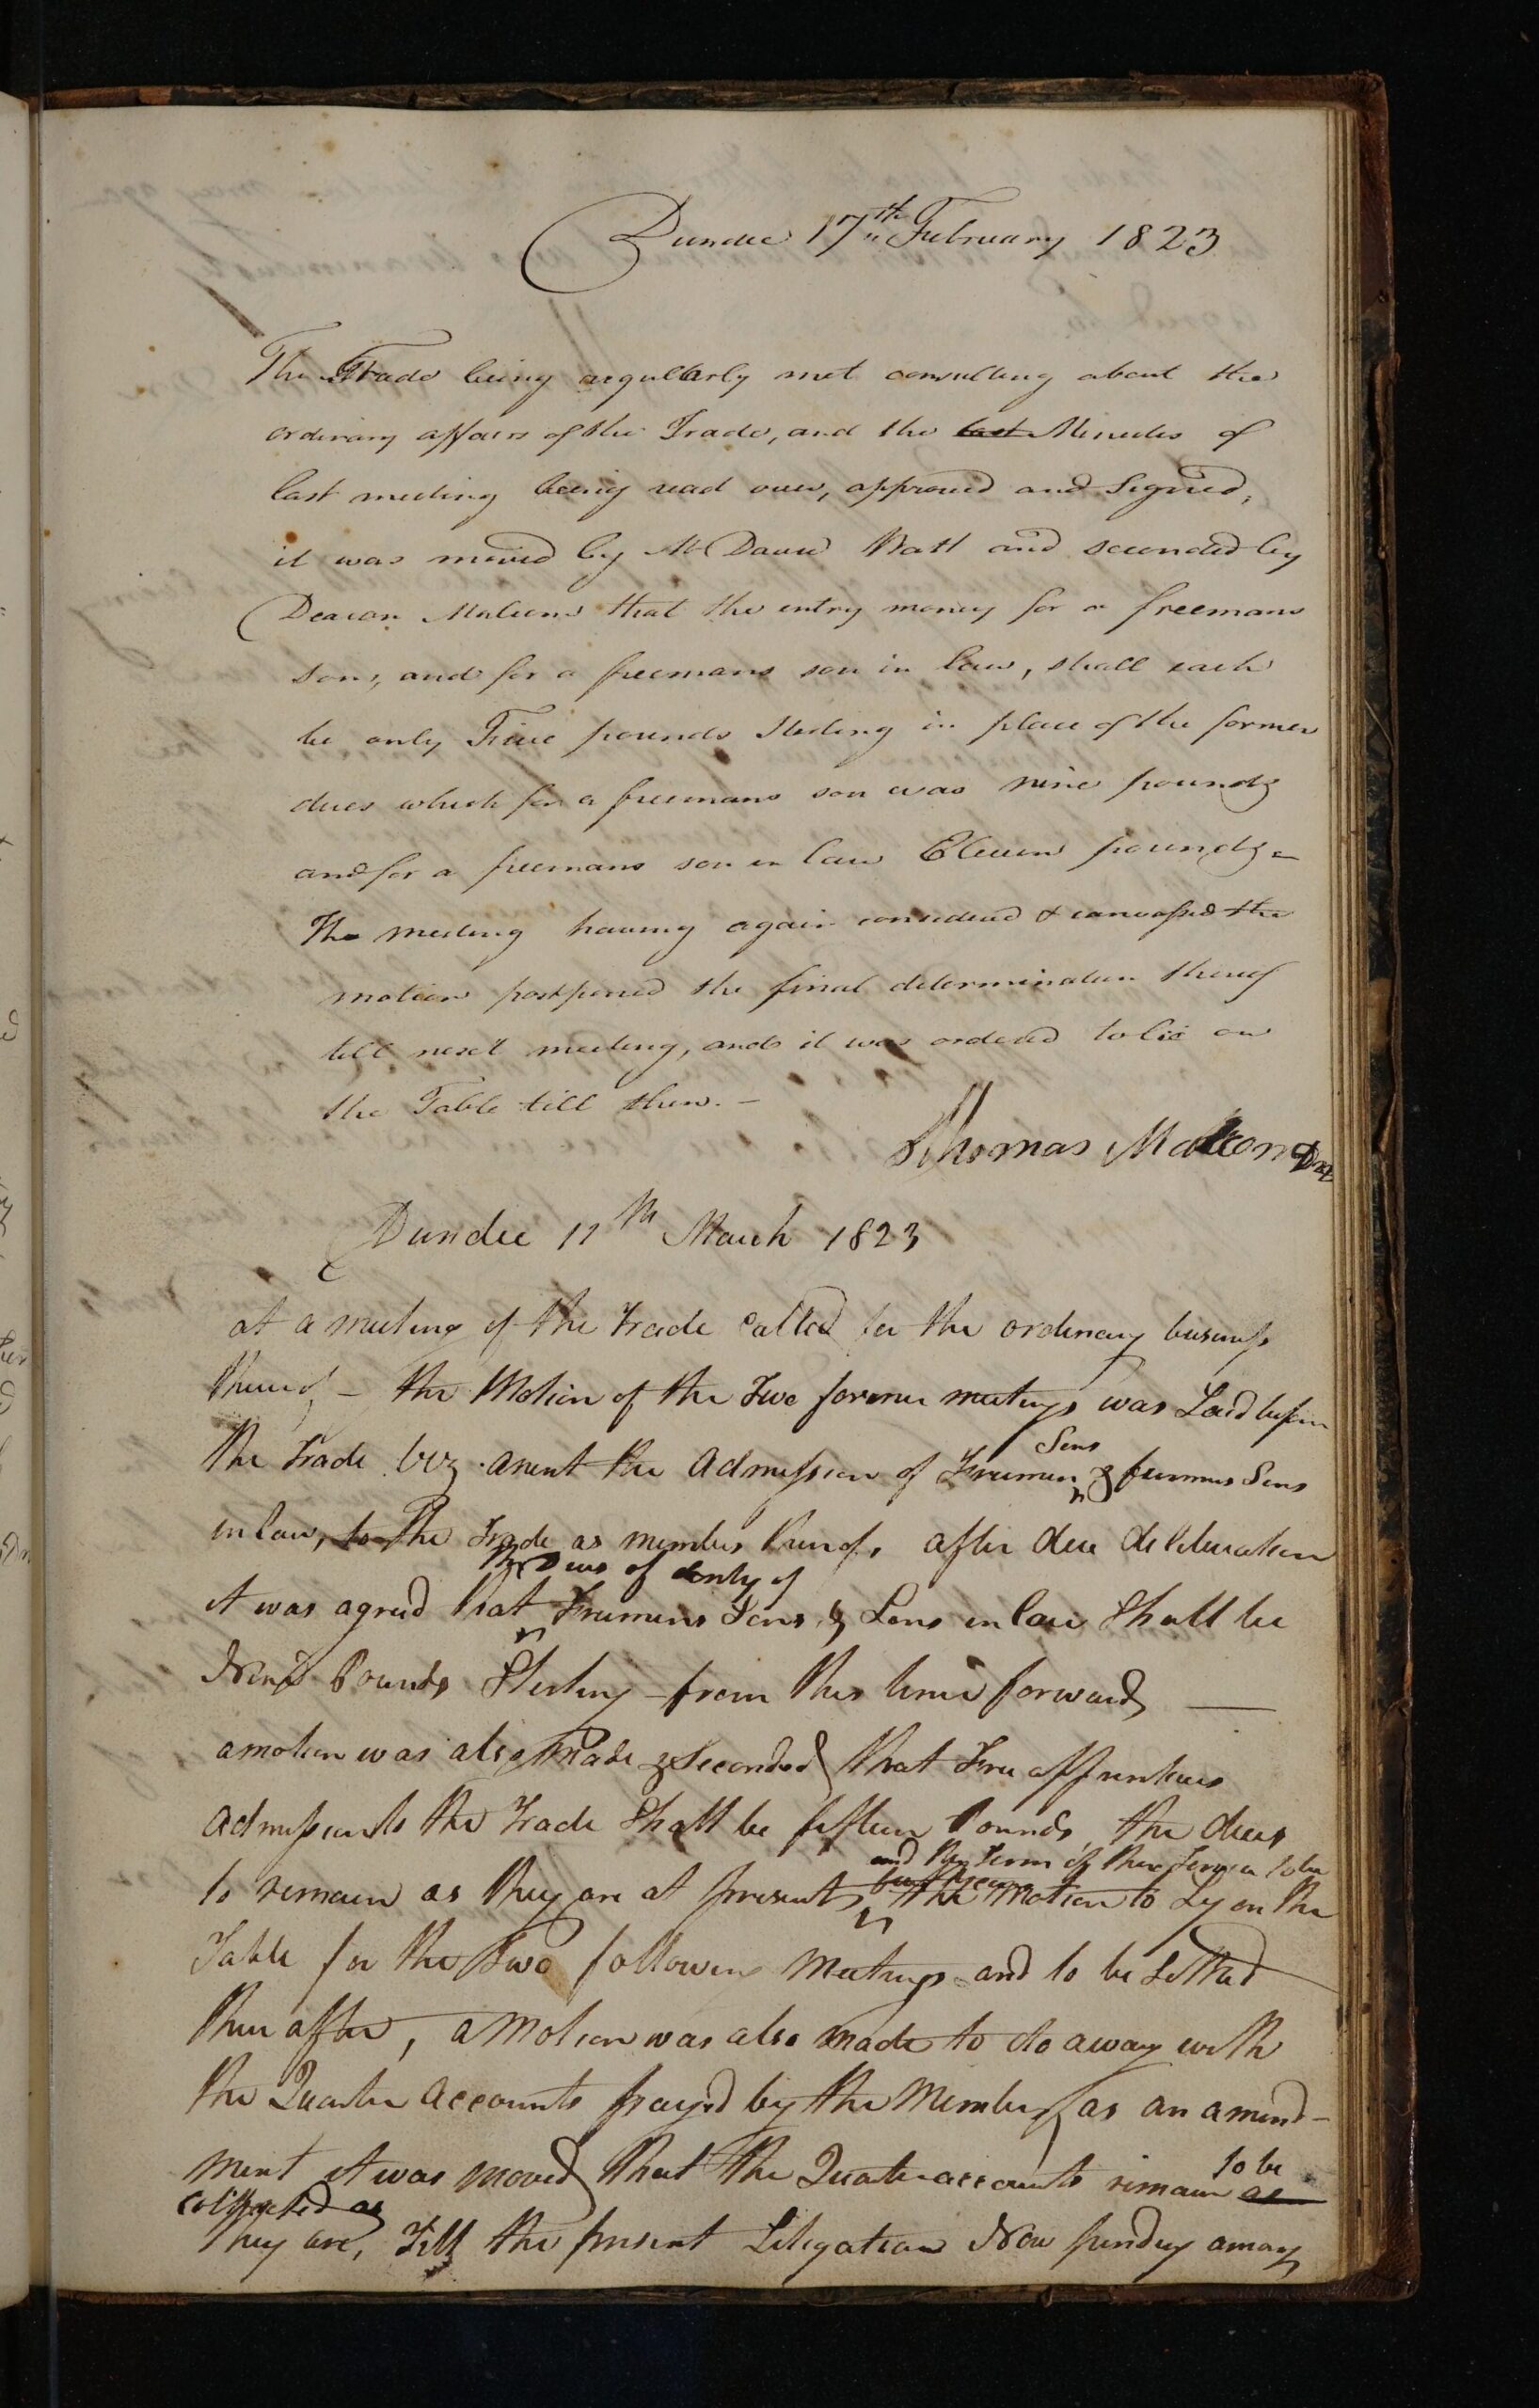 Dundee 17th February 1823
The Trade being regullarly met consulting about the
ordinary affairs of the Trade, and the last Minutes of
last meeting being read over, approved and Signed,
it was moved by Mr David Watt and seconded by
Deacon Malcom that the entry money for a freemans
son, and for a freemans son in law, shall each
be only Five pounds Sterling in place of the former
dues which for a freemans son was nine pounds
and for a freemans son in law Eleven pounds
The meeting having again considered & canvassed the
motion postponed the final determination thereof
till next meeting, and it was ordered to lie on
the Table till then. —
Thomas Malcom
Dundee 11th March 1823
at a meeting of the Trade Called for the ordinary business
thereof — the Motion of the Two former meetings was Laid before
the Trade viz. anent the Admission of Freemen Sons & freemens Sons
in law, to the Trade as members thereof, after due deliberation
the Dues of Entry of
it was agreed that Freemens Sons & Sons in law Shall be
Nine Pounds Sterling — from this time forward —
a motion was also Made & Seconded that Free apprentices
Admission to the Trade Shall be fifteen Pounds, the dues
and the term of their Service to be
to remain as they are at present, the Motion to Ly on the
Table for the Two following Meetings and to be Settled
there after, a Motion was also made to do away with
the Quarter accounts payed by the Members as an amend-
ment it was moved that the Quarter accounts remain to be as
collected as
they are, Till the present Litigation Now pending among